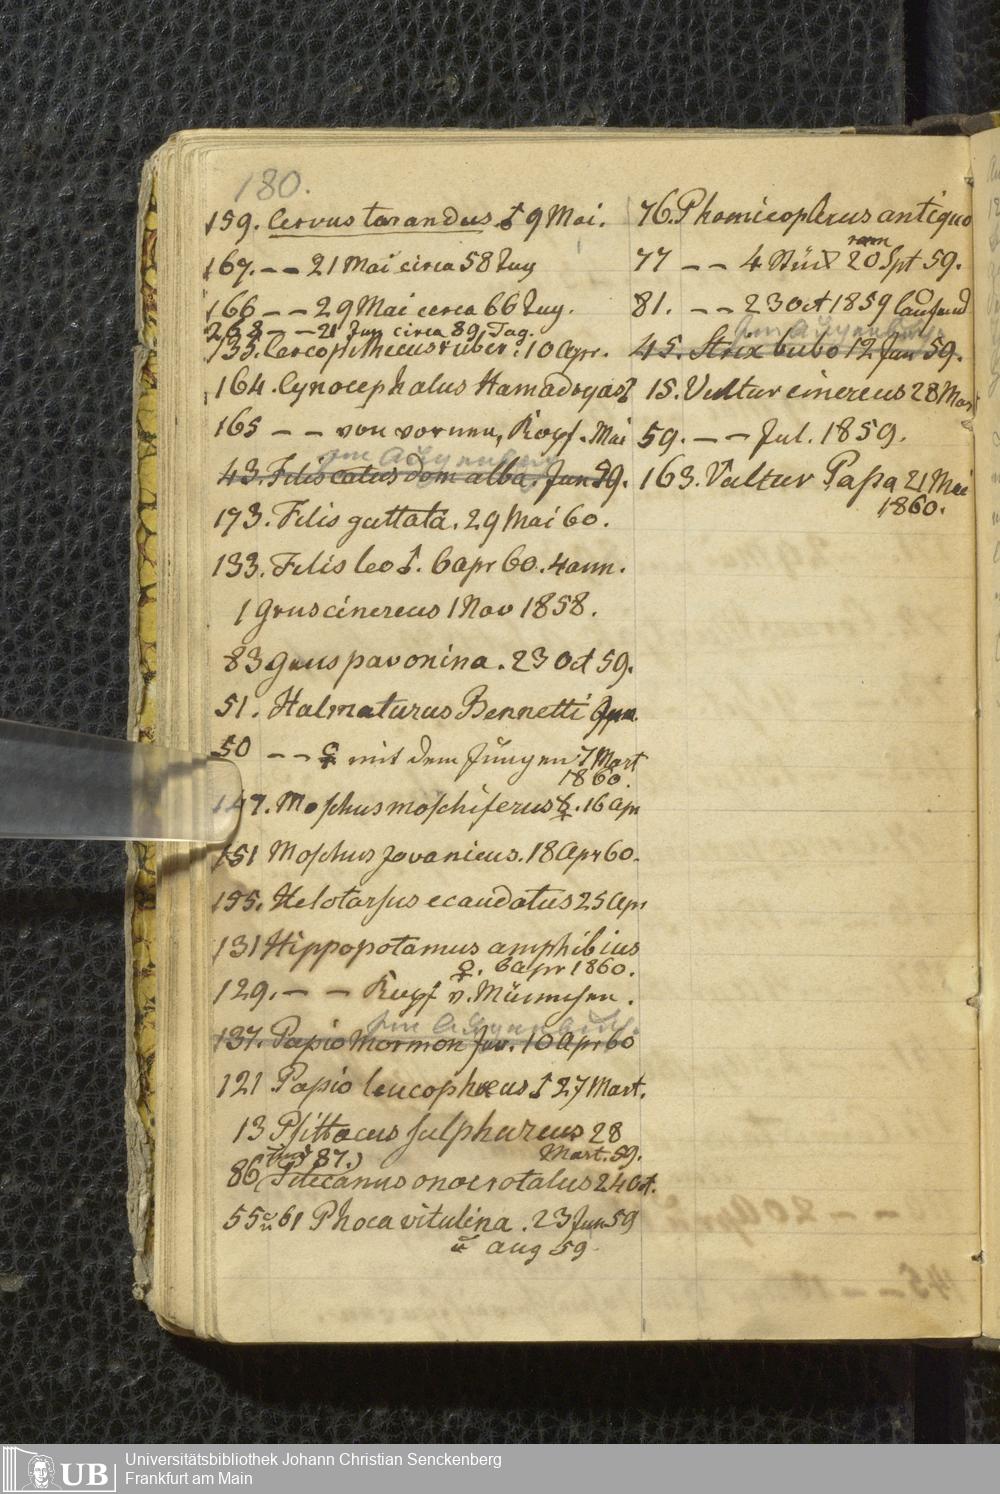 180.
159. Cervus tarandus ♂ 9 Mai.
167. – – 21 Mai circa 58 Tag
166 – – 29 Mai circa 66 Tag.
268 – – 21 Jun circa 89. Tag.
135. Cercopithecus ruber. 10 Apr.
164. Cynocephalus Hamadryas
165 – – von vornen, Kopf. Mai
43. Felis catus dom alba. Jan 59.
173. Felis guttata. 29 Mai 60.
133. Felis leo ♂. 6 Apr 60. 4 ann.
1 Grus cinereus 1 Nov 1858.
83 Grus pavonina. 23 Oct 59.
51. Halmaturus Bennetti
50 – – ♀ mit dem Jungen 7 Mart
1860.
147. Moschus moschiferus ♀. 16 Apr
151 Moschus Javanicus. 18 Apr 60.
155. Helotarsus ecaudatus 25 Apr
131 Hippopotamus amphibius
♀. 6 Apr 1860.
129. – – Kopf v. Männchen.
137. Papio Mormon Juv. 10 Apr 60
121 Papio leucophæus ♂ 27 Mart.
13 Psittacus sulphureus 28
Mart. 59.
(und 87.)
86 Pelecanus onocrotalus 24 Oct.
55 u 61 Phoca vitulina. 23 Jun 59
u Aug 59
76. Phoenicopterus antiquo
rum
77 – – 4 Stück 20 Spt 59.
81. – – 23 Oct 1859 laufend
45. Strix bubo 12 Jan 59.
15. Vultur cinereus 28 Mart
59. – – Jul. 1859.
163. Vultur Papa 21 Mai
1860.
Universitätsbibliothek Johann Christian Senckenberg
Frankfurt am Main
UB